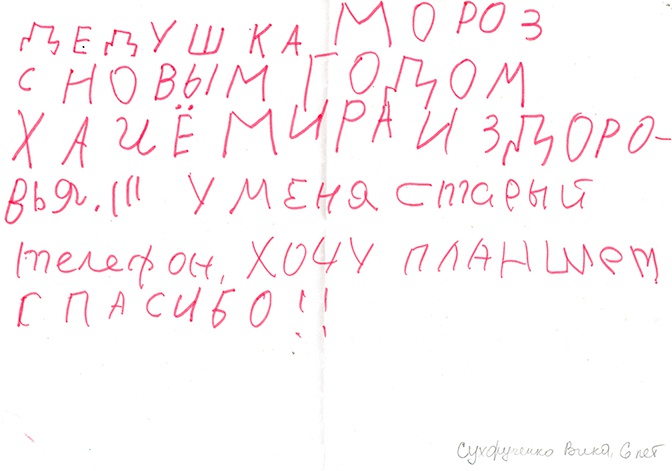 ДЕДУШКА МОРОЗ
С НОВЫМ ГОДОМ
ХАЧЁ МИРА И ЗДОРО-
ВЬЯ.!!! У МЕНЯ старый
телефон, ХОЧУ ПЛАНШет
СПАСИБО!!
Вика, 6 лет